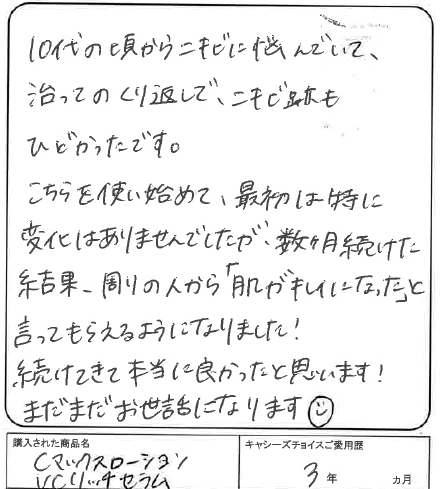 10代の頃からニキビに悩んでいて、
治ってのくり返しで、ニキビ跡も
ひどかったです。
こちらを使い始めて、最初は特に
変化はありませんでしたが、数ヶ月続けた
結果、周りの人から「肌がキレイになった」と
言ってもらえるようになりました!
続けてきて本当に良かったと思います!
まだまだお世話になります
購入された商品名
Cマックスローション
VCリッチセラム
キャシーズチョイスご愛用歴
3年 ヵ月